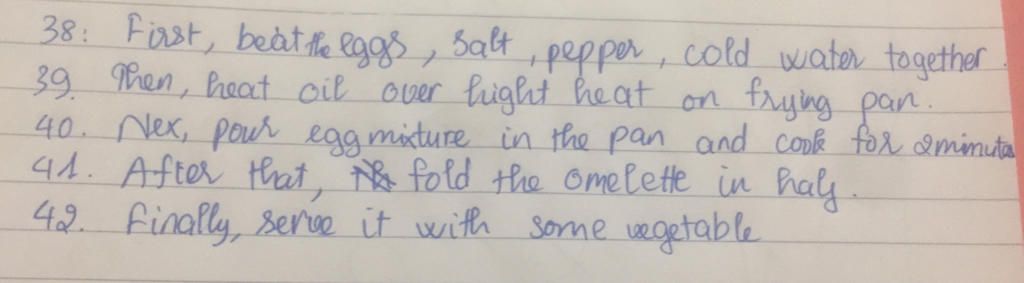 38: First, beat the eggs, salt, pepper, cold water together.
39. Then, heat oil over hight heat on frying pan.
40. Nex, pour egg mixture in the pan and cook for 2 minutes
41. After that, fold the omelette in half.
42. Finally, serve it with some vegetable